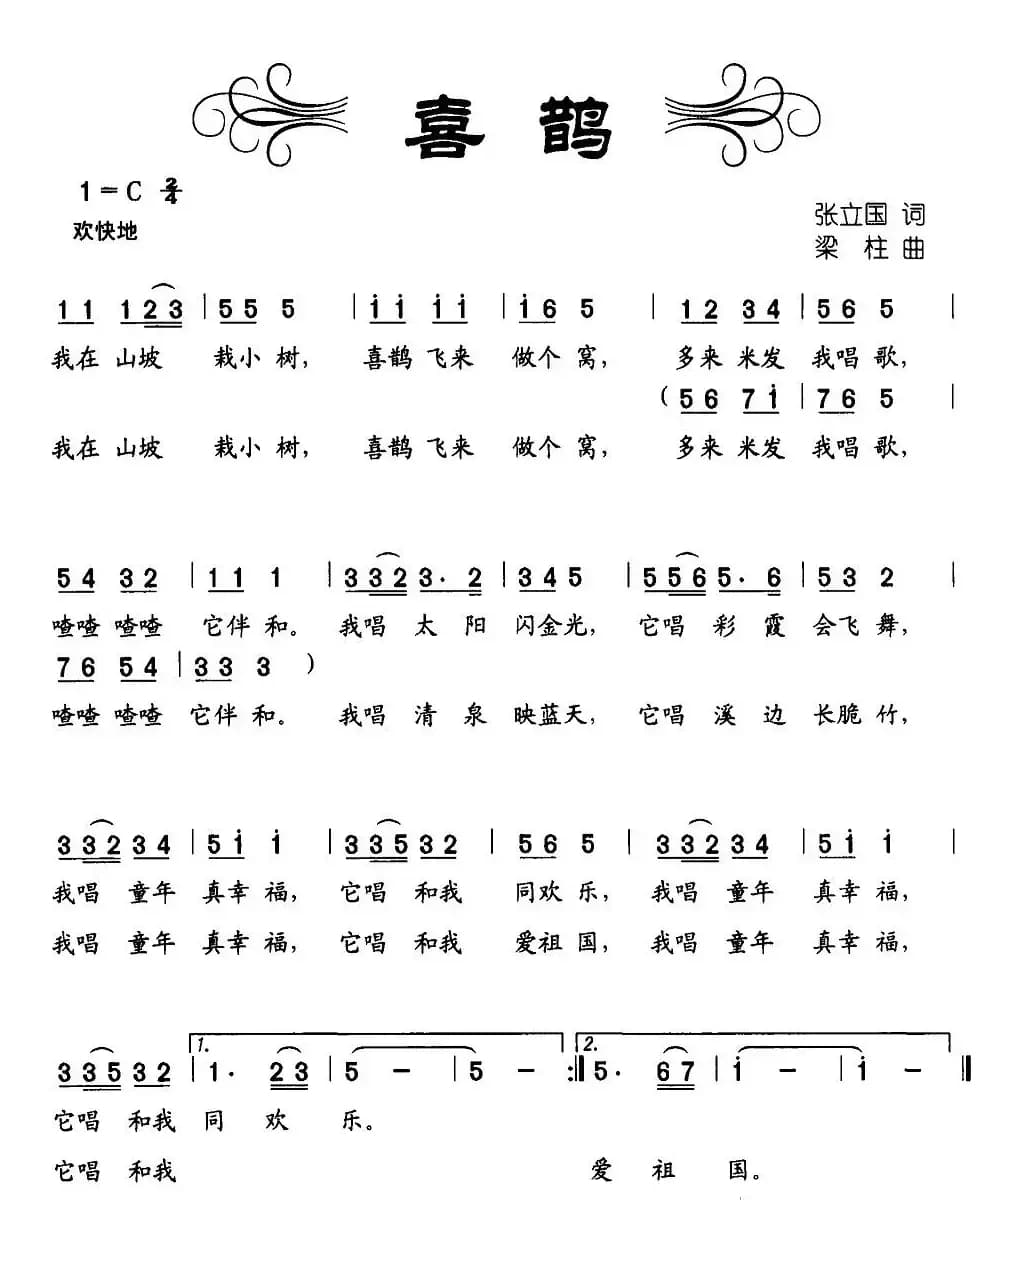 喜 鹊
1 = C 2/4
欢快地
张立国 词
梁 柱 曲
1 1 1 2 3 | 5 5 5 | i i i i | i 6 5 | 1 2 3 4 | 5 6 5 |
我在 山坡 栽小 树， 喜鹊 飞来 做个 窝， 多来 米发 我唱 歌，
( 5 6 7 i | 7 6 5 |
我在 山坡 栽小 树， 喜鹊 飞来 做个 窝， 多来 米发 我唱 歌，
5 4 3 2 | 1 1 1 | 3 3 2 3· 2 | 3 4 5 | 5 5 6 5· 6 | 5 3 2 |
喳喳 喳喳 它伴 和。 我唱 太 阳 闪金光， 它唱 彩 霞 会飞 舞，
7 6 5 4 | 3 3 3 )
喳喳 喳喳 它伴 和。 我唱 清 泉 映蓝天， 它唱 溪 边 长脆 竹，
3 3 2 3 4 | 5 i i | 3 3 5 3 2 | 5 6 5 | 3 3 2 3 4 | 5 i i |
我唱 童年 真幸 福， 它唱 和我 同欢 乐， 我唱 童年 真幸 福，
我唱 童年 真幸 福， 它唱 和我 爱祖 国， 我唱 童年 真幸 福，
1. 2.
3 3 5 3 2 | 1· 2 3 | 5 – | 5 – :‖ 5· 6 7 | i – | i – ‖
它唱 和我 同 欢 乐。
它唱 和我 爱 祖 国。